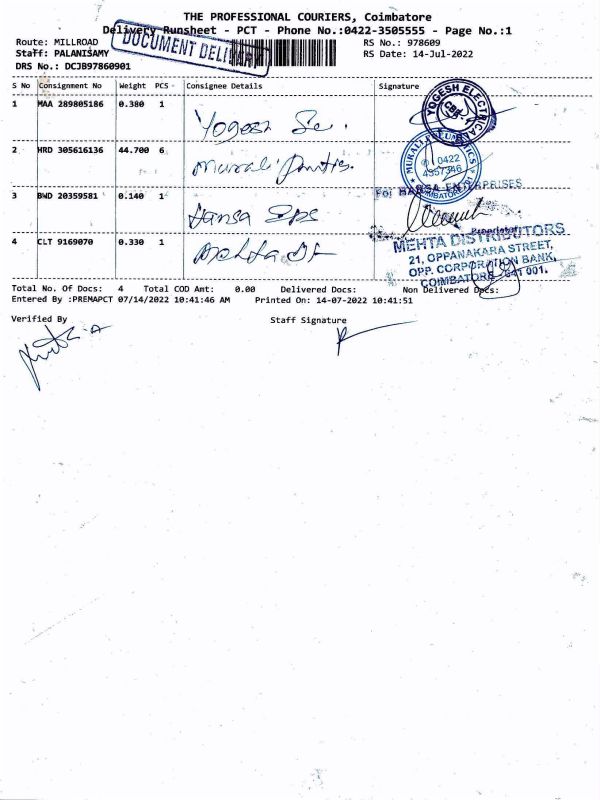 THE PROFESSIONAL COURIERS, Coimbatore
Delivery Runsheet - PCT - Phone No.:0422-3505555 - Page No.:1
DOCUMENT DELIVERY
Route: MILLROAD RS No.: 978609
Staff: PALANISAMY RS Date: 14-Jul-2022
DRS No.: DCJB97860901
S No Consignment No Weight PCS Consignee Details Signature
1 MAA 289805186 0.380 1 Yogesh
YOGESH ELECTRICAL CBE
2 HRD 305616136 44.700 6 Murali
MURALI 0422 4357346 COIMBATORE
3 BWD 20359581 0.140 1 Hansa Eps
For HANSA ENTERPRISES
Proprietor
4 CLT 9169070 0.330 1 Mehta
MEHTA DISTRIBUTORS
21, OPPANAKARA STREET,
OPP. CORPORATION BANK,
COIMBATORE - 641 001.
Total No. Of Docs: 4 Total COD Amt: 0.00 Delivered Docs: Non Delivered Docs:
Entered By :PREMAPCT 07/14/2022 10:41:46 AM Printed On: 14-07-2022 10:41:51
Verified By Staff Signature